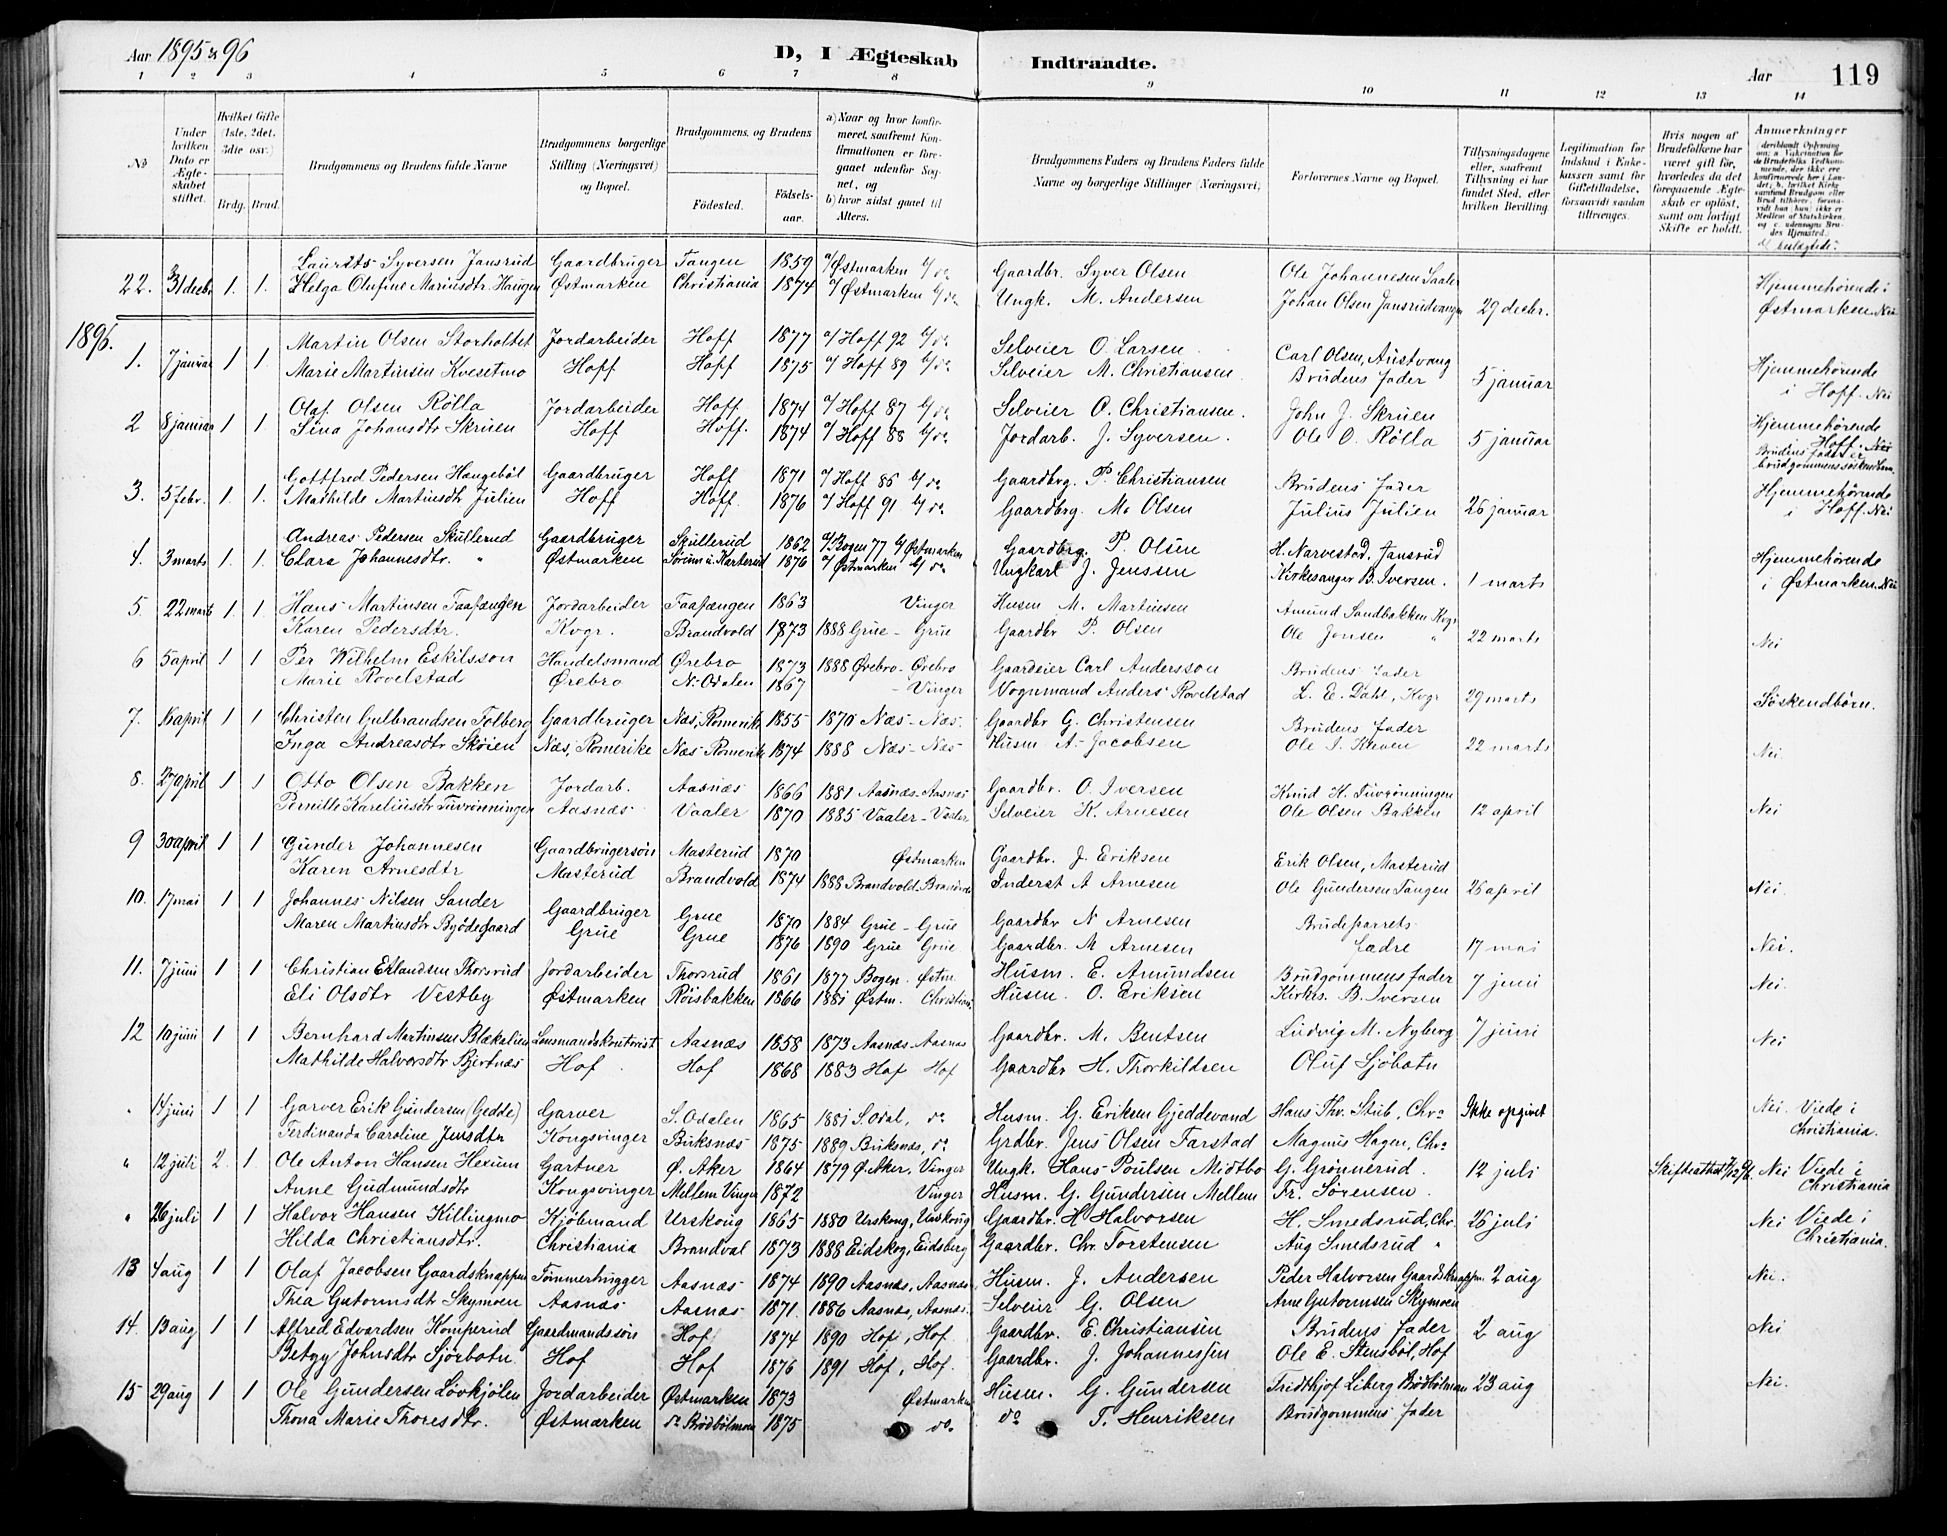 Aar 1895 & 96
D, I Ægteskab Indtraadte.
Aar 119
1 2 3 4 5 6 7 8 9 10 11 12 13 14
No
Under hvilken Dato er Ægteskabet stiftet.
Hvilket Gifte (1ste, 2det, 3die osv.)
Brdg. Brud.
Brudgommens og Brudens fulde Navne
Brudgommens borgerlige Stilling (Næringsvei) og Bopæl.
Brudgommens og Brudens
Fødested. Fødselsaar.
a) Naar og hvor konfirmeret, saafremt Konfirmationen er foregaaet udenfor Sognet, og
b) hvor sidst gaaet til Alters.
Brudgommens Faders og Brudens Faders fulde Navne og borgerlige Stillinger (Næringsvei)
Forlovernes Navne og Bopæl.
Tillysningsdagene eller, saafremt Tillysning ei har fundet Sted, efter hvilken Bevilling
Legitimation for Indskud i Enkekassen samt for Giftetilladelse, forsaavidt saadan tiltrænges.
Hvis nogen af Brudefolkene har været gift før, hvorledes da det foregaaende Ægteskab er opløst, samt om lovligt Skifte er holdt.
Anmerkninger
22. 31 decbr 1. 1. Laurits Syversen Jansrud Gaardbruger Tangen 1859 a/ Østmarken b/ do Gaardbr. Syver Olsen Ole Johannesen Saaler 29 decbr. Hjemmehørende i
Helga Olufine Mariusdtr. Haugen Østmarken Christiania 1874 a/ Østmarken b/ do Ungk. M. Andersen Johan Olsen Jansrudvangen Østmarken. Nei
1896.
1. 7 januar 1 1 Martin Olsen Storholtet Jordarbeider Hoff 1877 a/ Hoff 92 b/ do Selveier O. Larsen Carl Olsen, Austvang 5 januar Hjemmehørende
Marie Martinsen Kvesetmo Hoff Hoff 1875 a/ Hoff 89 b/ do Selveier M. Christiansen Brudens Fader i Hoff. Nei
2 8 januar 1 1 Olaf Olsen Rølla Jordarbeider Hoff 1874 a/ Hoff 87 b/ do Selveier O. Christiansen. John J. Skruen 5 januar Hjemmehørende
Sina Johansdtr Skruen Hoff Hoff. 1874 a/ Hoff 88 b/ do Jordarb. J. Syversen. Ole O. Rølla Hoff. Nei
Brudens Fader er brudgommens søskendebarn
3. 5 febr. 1. 1. Gottfred Pedersen Haugebøl Gaardbruger Hoff 1871 a/ Hoff 86 b/ do Gaardbrg. P. Christiansen Brudens Fader 26 januar Hjemmehørende
Mathilde Martinsdtr Julien Hoff Hoff. 1876 a/ Hoff 91 b/ do Gaardbrg. M. Olsen Julius Julien i Hoff. Nei
4. 3 marts 1. 1. Andreas Pedersen Skullerud Gaardbruger Skullerud 1862 a/ Bogen 77 b/ Østmarken Gaardbrg. P. Olsen H. Narvestad, Jansrud 1 marts Hjemmehørende
Clara Johannesdtr. " Østmarken 1876 a/ Østmarken b/ do Ungkarl J. Jenssen Kirkesanger B. Iversen. i Østmarken. Nei
5 22 marts 1. 1. Hans Martinsen Taafængen Jordarbeider Taafængen 1863 Vinger Husm M. Martinsen Amund Sandbakken Kvgr 22 marts Nei
Karen Pedersdtr. Kvgr. Brandvold 1873 1888 Grue - Grue Gaardbr P. Olsen Ole Jonsen "
6 5 april 1 1 Per Wilhelm Eskilsson Handelsmand Ørebro 1873 1888 Ørebro - Ørebro Gaardeier Carl Andersson Brudens Fader 29 marts Søskendbørn.
Marie Rovelstad Ørebro N. Odalen 1867 - Vinger Vognmand Anders Rovelstad L. E. Dahl, Kvgr
7. april 1 1 Christen Gulbrandsen Tolberg Gaardbruger Næs, Romerike 1855 1870 Næs - Næs. Gaardbr G. Christensen Brudens Fader 22 marts Nei.
Inga Andreasdtr Skøien Næs, Romerike Næs Romerike 1874 1888 Næs - Næs Husm A. Jacobsen Ole
8. 27 april 1 1 Otto Olsen Bakken Jordarb. Aasnæs 1866 1881 Aasnæs - Aasnæs Gaardbr. O. Iversen Knud K. Tuvrønningen 12 april Nei
Pernille Kareliusdtr Tuvrønningen Aasnæs Vaaler 1870 1885 Vaaler - Vaaler Selveier K. Arnesen Ole Olsen Bakken
9 30 april 1 1 Gunder Johannesen Gaardbrugersøn Masterud 1870 Østmarken Gaardbr. J. Eriksen Erik Olsen, Masterud 26 april Nei.
Karen Arnesdtr Masterud Brandvold 1874 1888 Brandvold, Brandvold Inderst A Arnesen Ole Gundersen Tangen
10. 17 mai 1 1 Johannes Nilsen Sander Gaardbruger Grue 1870 1884 Grue - Grue Gaardbr N Arnesen Brudeparrets 17 mai Nei.
Maren Martinsdtr Bydegaard Grue Grue 1876 1890 Grue Grue Gaardbr. M Arnesen Fædre
11. 7 juni 1 1 Christian Erlandsen Thorsrud Jordarbeider Thorsrud 1861 1877 Bogen. Østm. Husm. E. Amundsen Brudgommens Fader 7 juni Nei.
Eli Olsdtr Vestby Østmarken Røisbakken 1866 1881 Østm. Christiania Husm. O. Eriksen Kirkes. B. Iversen
12 10 juni 1 1 Bernhard Martinsen Blækelien Lensmandskontorist Aasnæs 1858 1873 Aasnæs - Aasnæs Gaardbr. M. Bentsen Ludvig M. Nyberg 7 juni Nei
Mathilde Halvorsdtr Bjertnæs Hof Hof 1868 1883 Hof Hof Gaardbr H. Thorkildsen Oluf Sjøbotn
" 14 juni 1 1 Garver Erik Gundersen (Gedde) Garver S. Odalen 1865 1881 S. Odal, do Husm. G. Eriksen Gjeddevand Hans Thv. Stub, Chr. Ikke opgivet Nei. Viede i
Ferdinanda Caroline Jensdtr Kongsvinger Buksnæs 1875 1889 Buksnæs, do Grdbr. Jens Olsen Farstad Magnus Hagen, Chr. Christiania.
" 12 juli 2. 1. Ole Anton Hansen Hexum Gartner Ø. Aker 1864 1879 Ø. Aker, Vinger Ungk. Hans Poulsen Midtbo G. Grønnerud. 12 juli Nei Viede i
Anne Gudmundsdtr Kongsvinger Mellem Vinger 1872 Vinger Husm. G. Gundersen Mellem Fr. Sørensen. Christiania
" 26 juli 1 1 Halvor Hansen Killingmo Kjøbmand Urskoug 1865 1880 Urskoug, Urskoug Gaardbr. H Halvorsen H. Smedsrud, Chr. 26 juli Nei Viede i
Hilda Christiansdtr. Christiania Brandval 1873 1888 Eidskog, Eidsberg Gaardbr. Chr Torstensen Aug Smedsrud " Christiania.
13 4 aug 1 1 Olaf Jacobsen Gaardsknappen Tømmerhugger Aasnæs 1874 1890 Aasnæs, Aasnæs Husm. J. Andersen Peder Halvorsen Gaardsknappen. 2 aug Nei.
Thea Gutormsdtr Skymoen Aasnæs Aasnæs 1871. 1886 Aasnæs, Aasnæs. Selveier G. Olsen Arne Gutormsen Skymoen
14. 13 aug 1 1 Alfred Edvardsen Komperud Gaardmandssøn Hof 1874 1890 Hof, Hof. Gaardbr. E. Christiansen Brudens Fader 2 aug Nei
Betzy Johnsdtr Sjørbotn Hof Hof 1876 1891 Hof, Hof. Gaardbr. J. Johannessen Ole E. Stensbøl, Hof
15 29 aug 1 1 Ole Gundersen Løvkjølen Jordarbeider Østmarken 1873 Østmarken Husm. G. Gundersen Fridthjof Liberg Brødbølmoen 23 aug Nei.
Thona Marie Thoresdtr. Østmarken do Brødbølmoen 1875 do. do T. Henriksen Brudgommens Fader